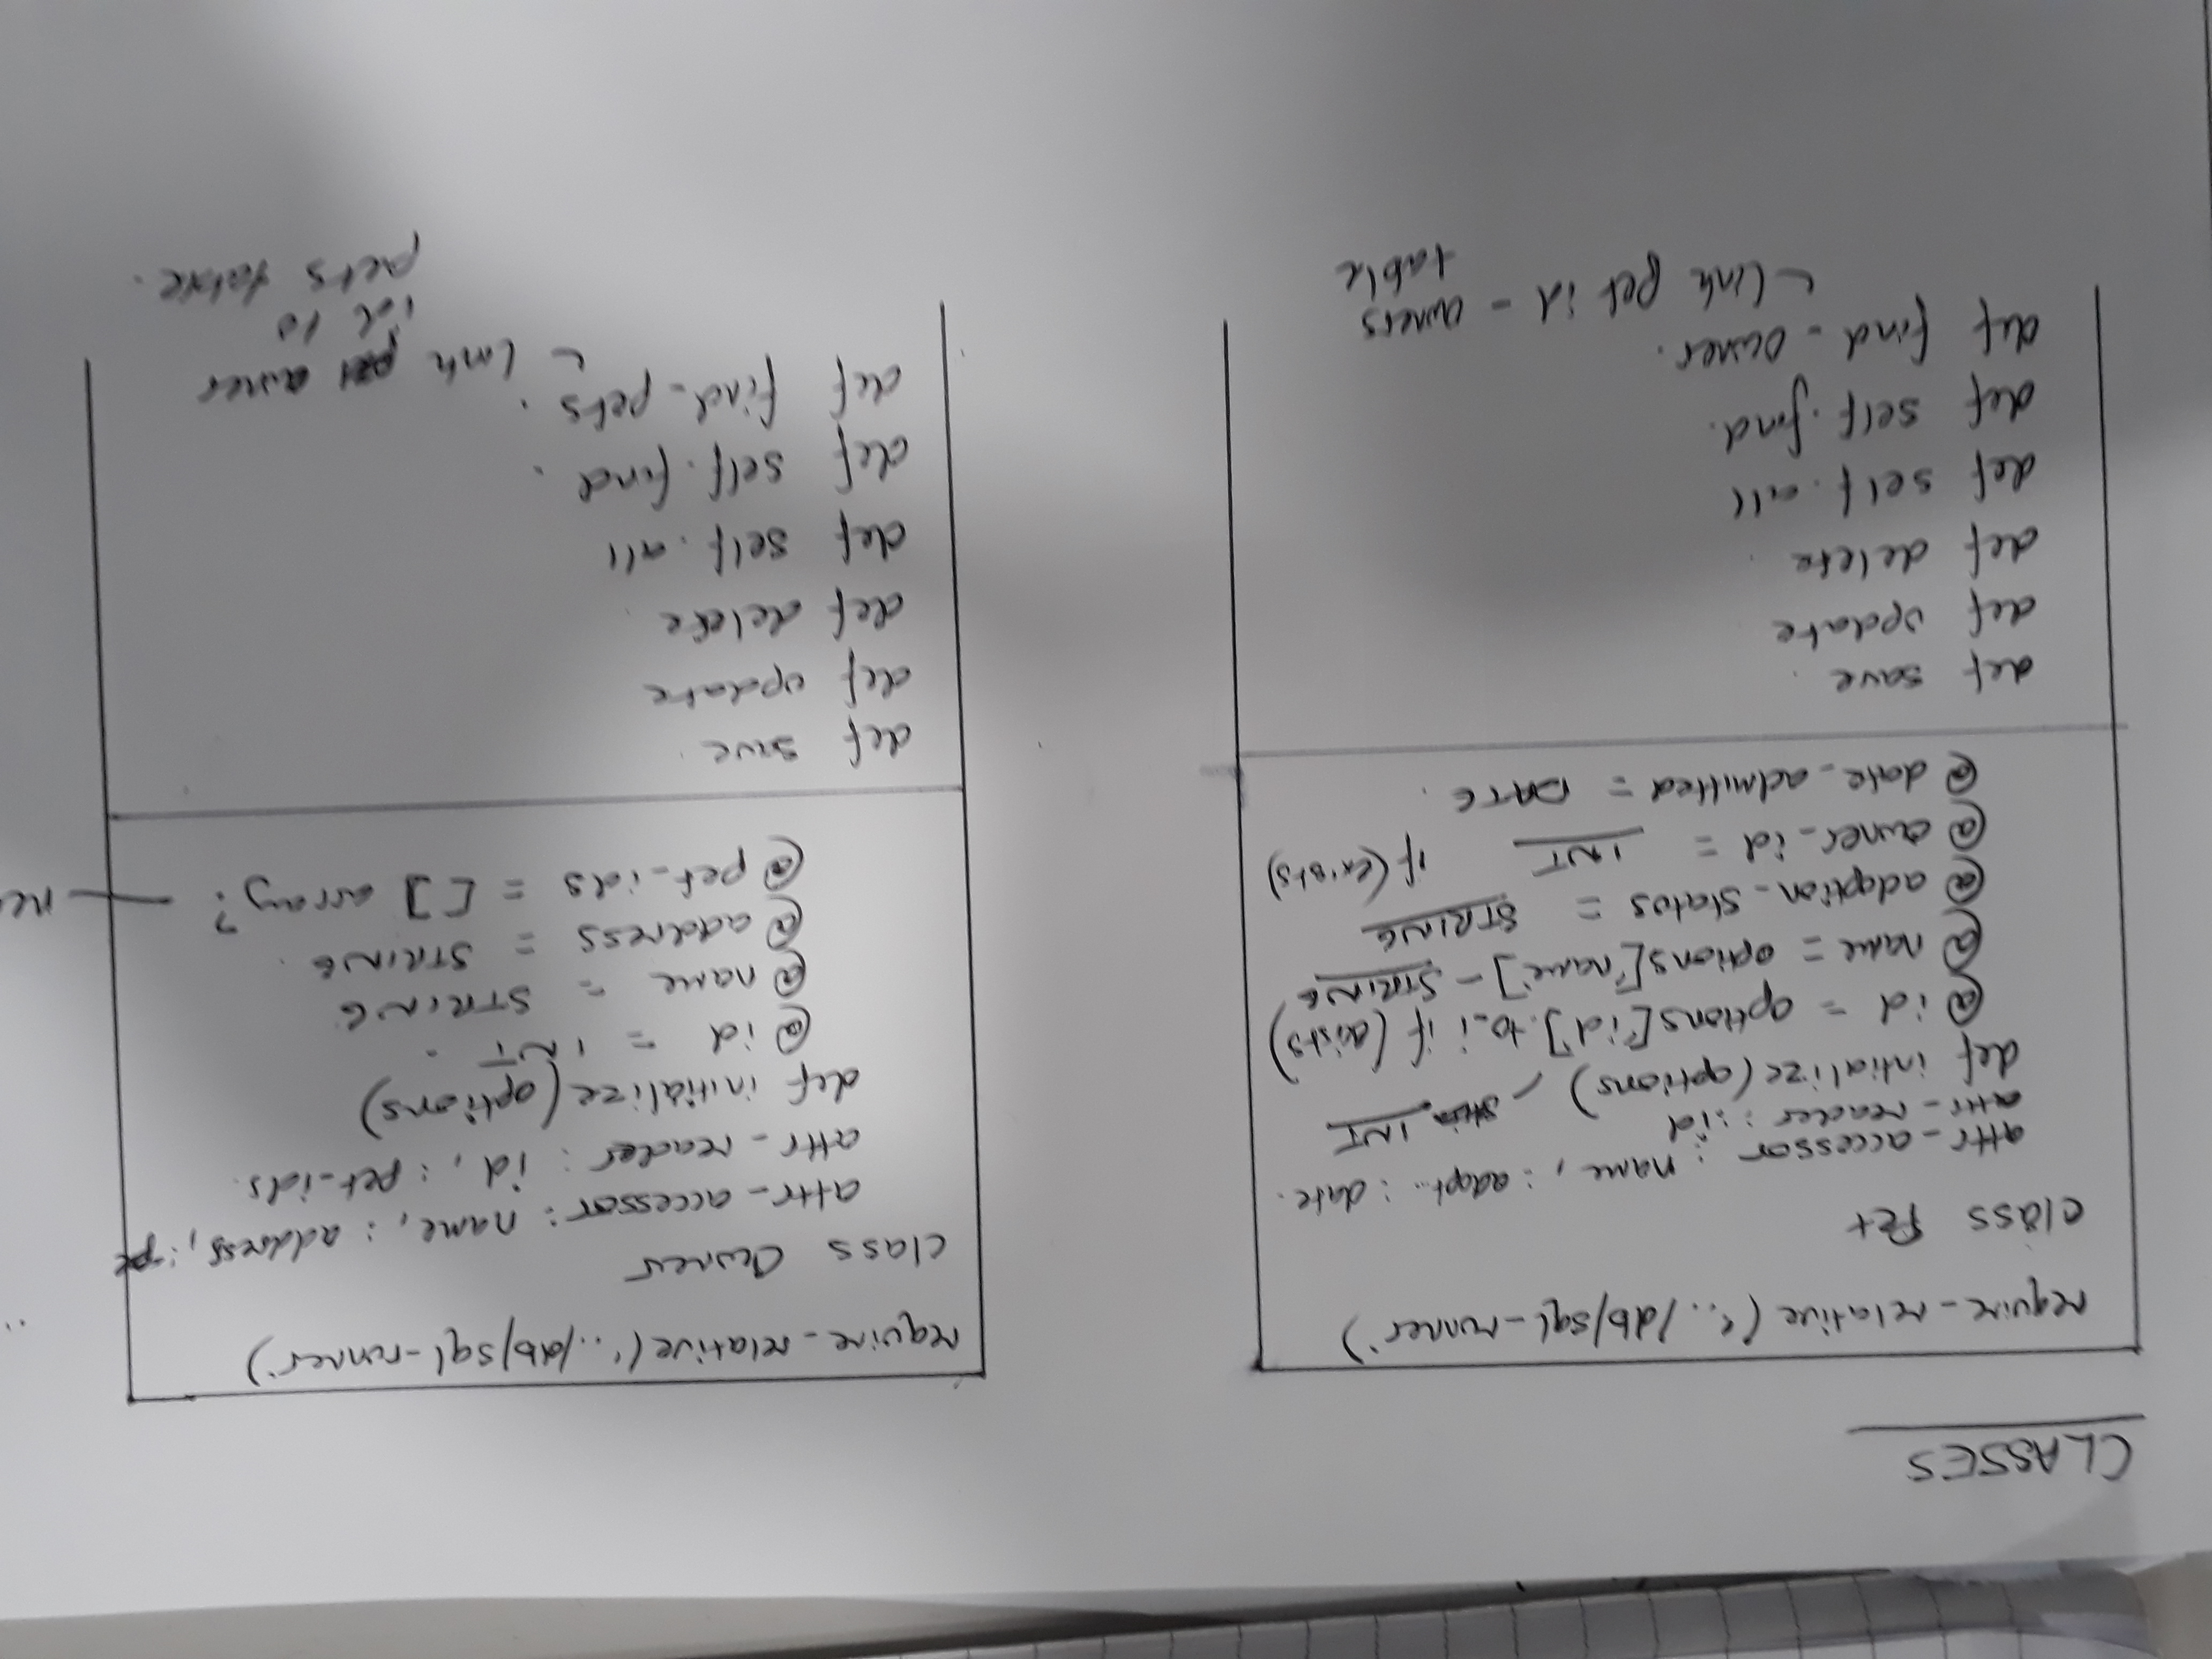 CLASSES
require_relative('../db/sql-runner')
class Pet
attr_accessor : name, : adopt.. : date.
attr_reader : :id
def intialize(options) - INT
@ id = options['id'].to_i if (exists)
@ name = options['name'] - STRING
@ adoption_status = STRING
@ owner_id = INT if (exists)
@ date_admitted = DATE.
def save.
def update
def delete.
def self.all
def self.find.
def find_owner.
link pet id - owners
table
require_relative('../db/sql-runner')
class Owner
attr_accessor : name, : address, :pe
attr_reader : id, : pet_ids.
def initialize(options)
@ id = INT .
@ name = STRING
@ address = STRING.
@ pet_ids = [] array? — ne
def save.
def update
def delete.
def self.all
def self.find.
def find_pets.
link owner
id to
pets table.